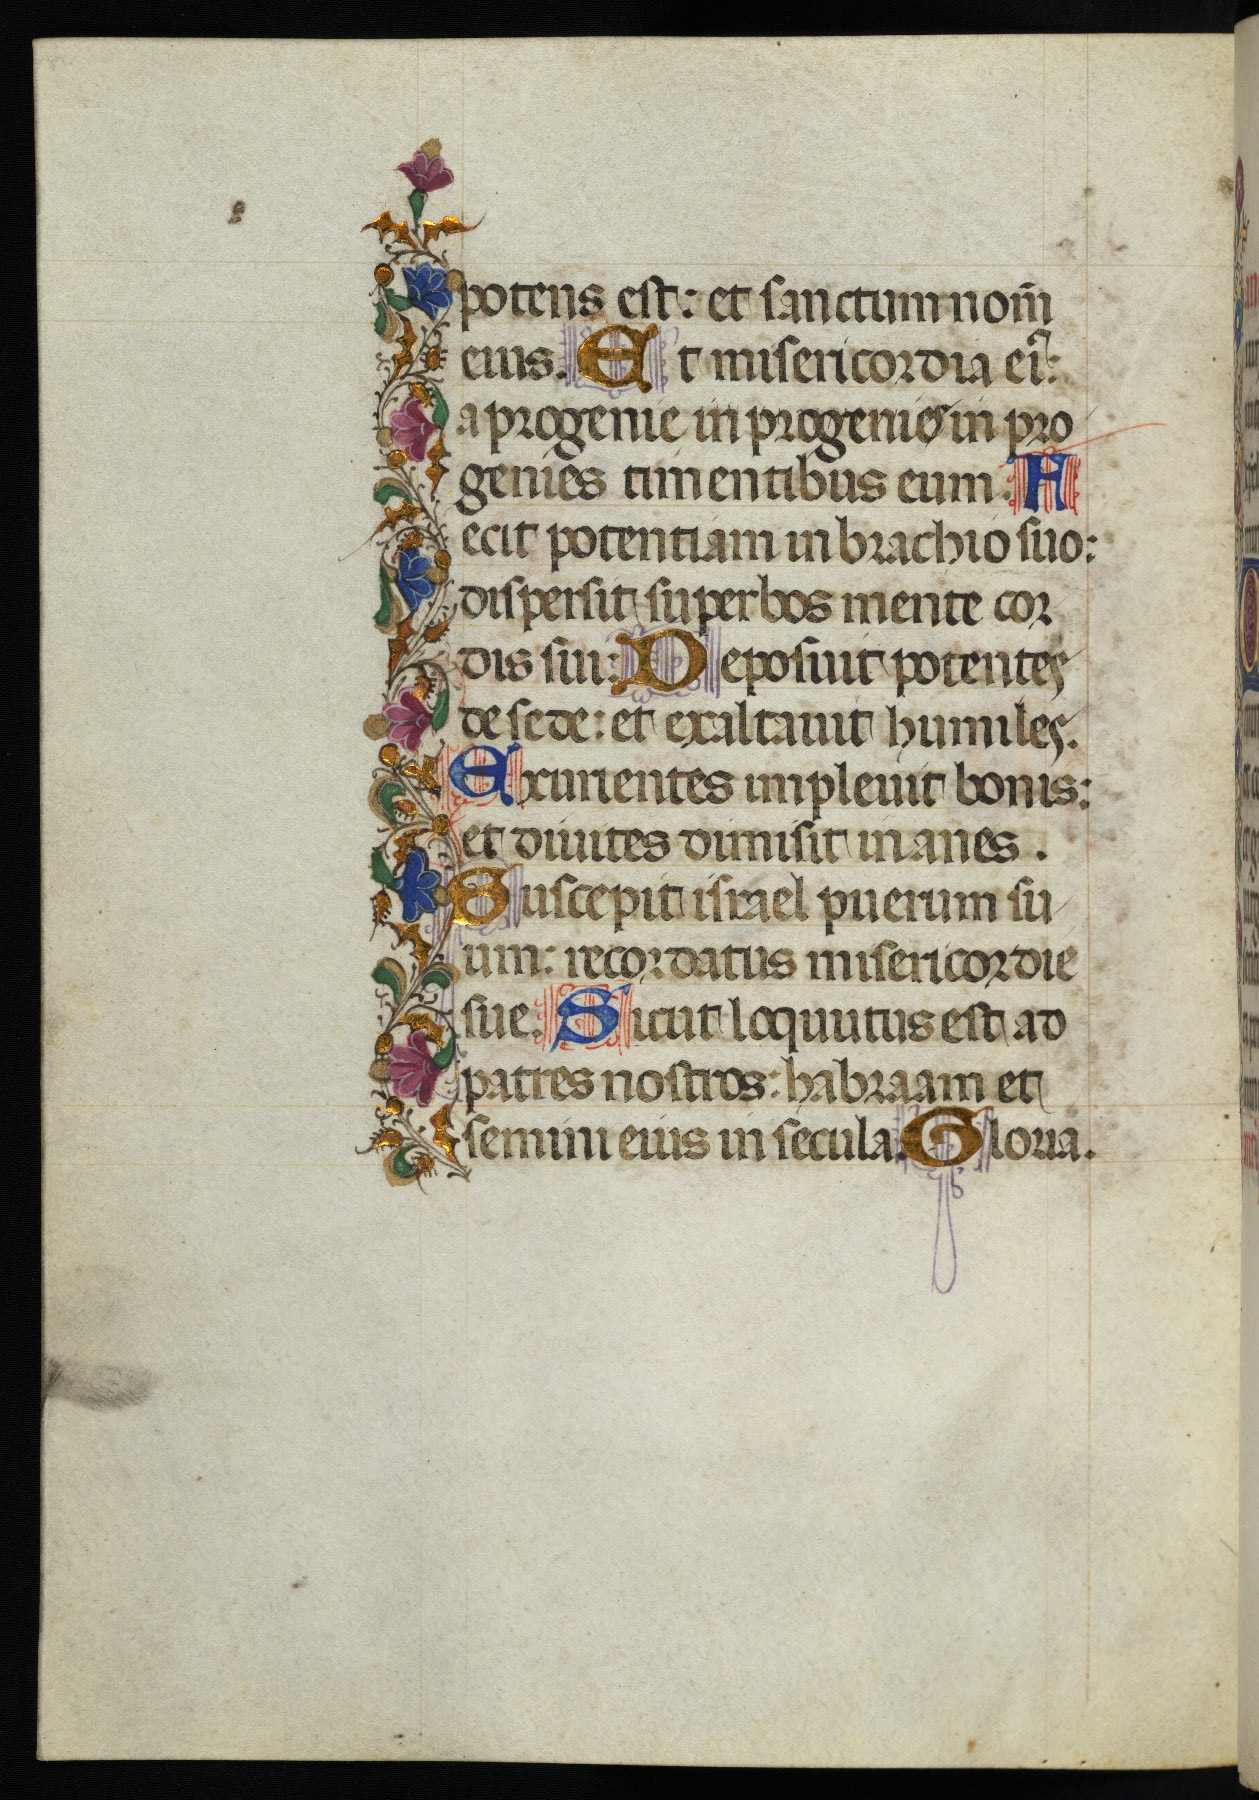 potens est: et sanctum nom̄
eius. Et misericordia ei᾽:
a progenie in progenies in pro
genies timentibus eum. F
ecit potentiam in brachio suo:
dispersit superbos mente cor
dis sui: Deposuit potentes
de sede: et exaltauit humiles.
Exurientes impleuit bonis:
et diuites dimisit inanes.
Suscepit israel puerum su
um: recordatus misericordie
sue. Sicut loquutus est ad
patres nostros: habraam et
semini eius in secula. Gloria.